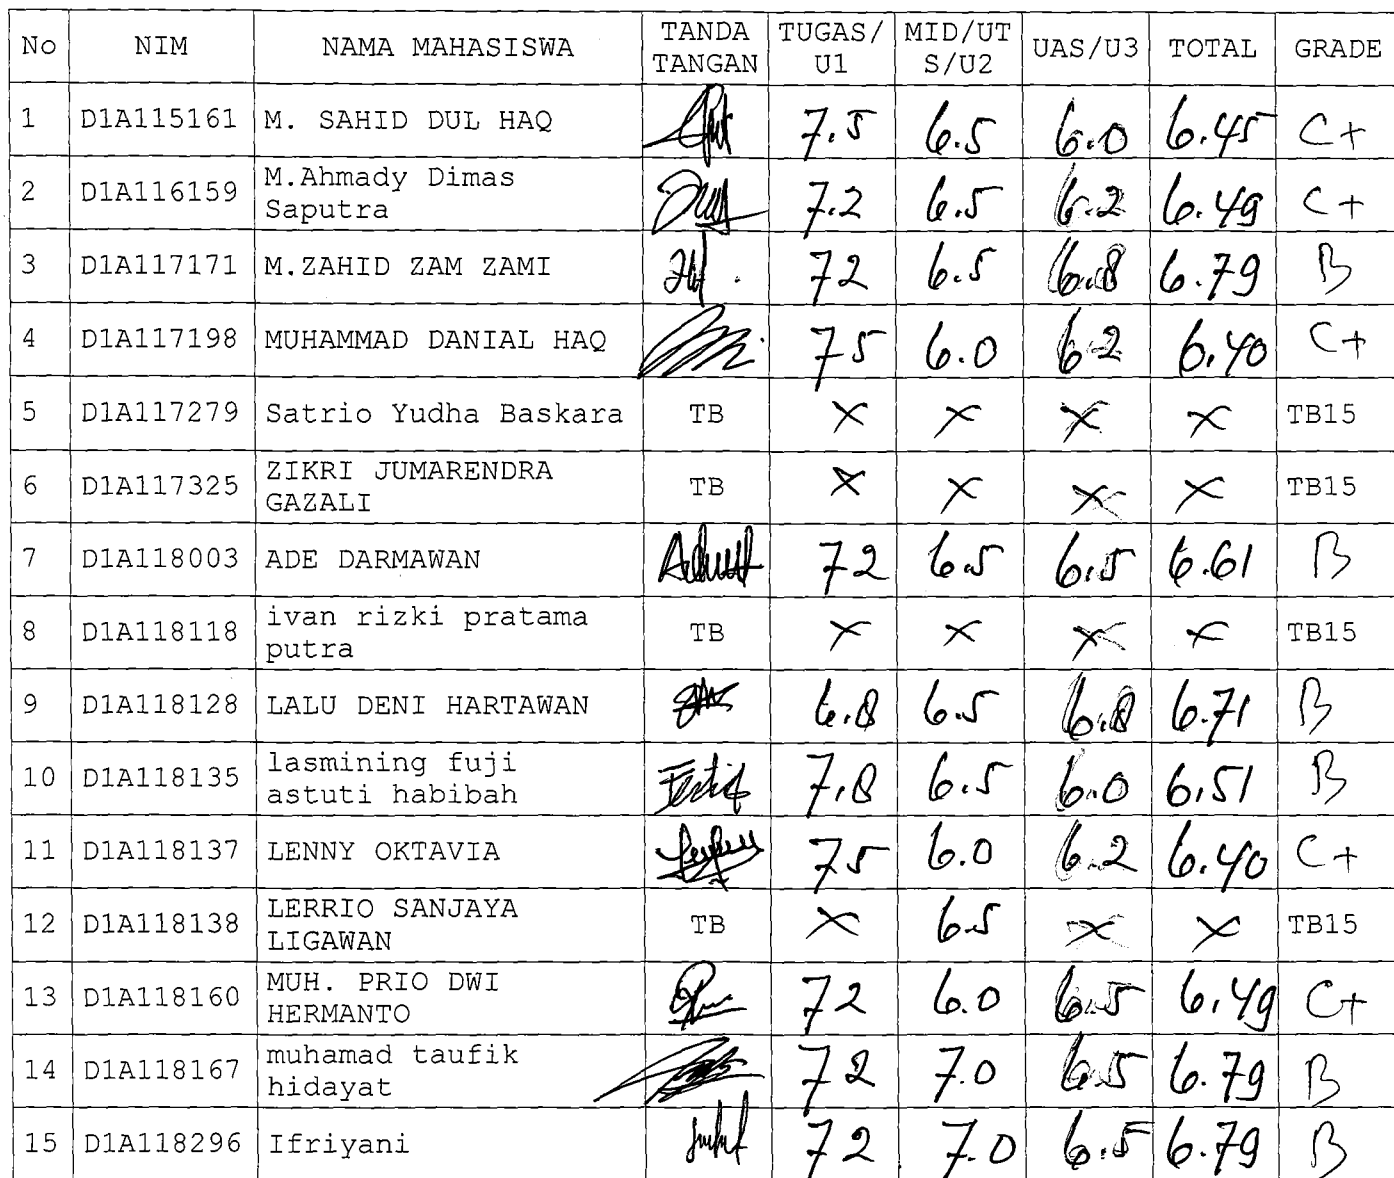 No NIM NAMA MAHASISWA TANDA TANGAN TUGAS/U1 MID/UTS/U2 UAS/U3 TOTAL GRADE
1 D1A115161 M. SAHID DUL HAQ 7.5 6.5 6.0 6.45 C+
2 D1A116159 M.Ahmady Dimas Saputra 7.2 6.5 6.2 6.49 C+
3 D1A117171 M.ZAHID ZAM ZAMI 72 6.5 6.8 6.79 B
4 D1A117198 MUHAMMAD DANIAL HAQ 75 6.0 6.2 6.40 C+
5 D1A117279 Satrio Yudha Baskara TB X X X X TB15
6 D1A117325 ZIKRI JUMARENDRA GAZALI TB X X X X TB15
7 D1A118003 ADE DARMAWAN 72 6.5 6.5 6.61 B
8 D1A118118 ivan rizki pratama putra TB X X X X TB15
9 D1A118128 LALU DENI HARTAWAN 6.8 6.5 6.8 6.71 B
10 D1A118135 lasmining fuji astuti habibah 7.8 6.5 6.0 6.51 B
11 D1A118137 LENNY OKTAVIA 75 6.0 6.2 6.40 C+
12 D1A118138 LERRIO SANJAYA LIGAWAN TB X 6.5 X X TB15
13 D1A118160 MUH. PRIO DWI HERMANTO 72 6.0 6.5 6.49 C+
14 D1A118167 muhamad taufik hidayat 72 7.0 6.5 6.79 B
15 D1A118296 Ifriyani 72 7.0 6.5 6.79 B